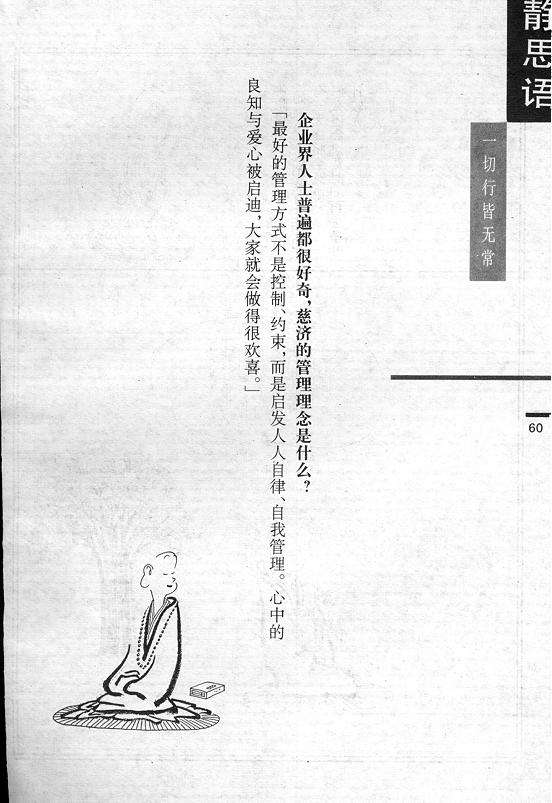 静思语
一切行皆无常
60
企业界人士普遍都很好奇，慈济的管理理念是什么？
「最好的管理方式不是控制、约束，而是启发人人自律、自我管理。心中的
良知与爱心被启迪，大家就会做得很欢喜。」